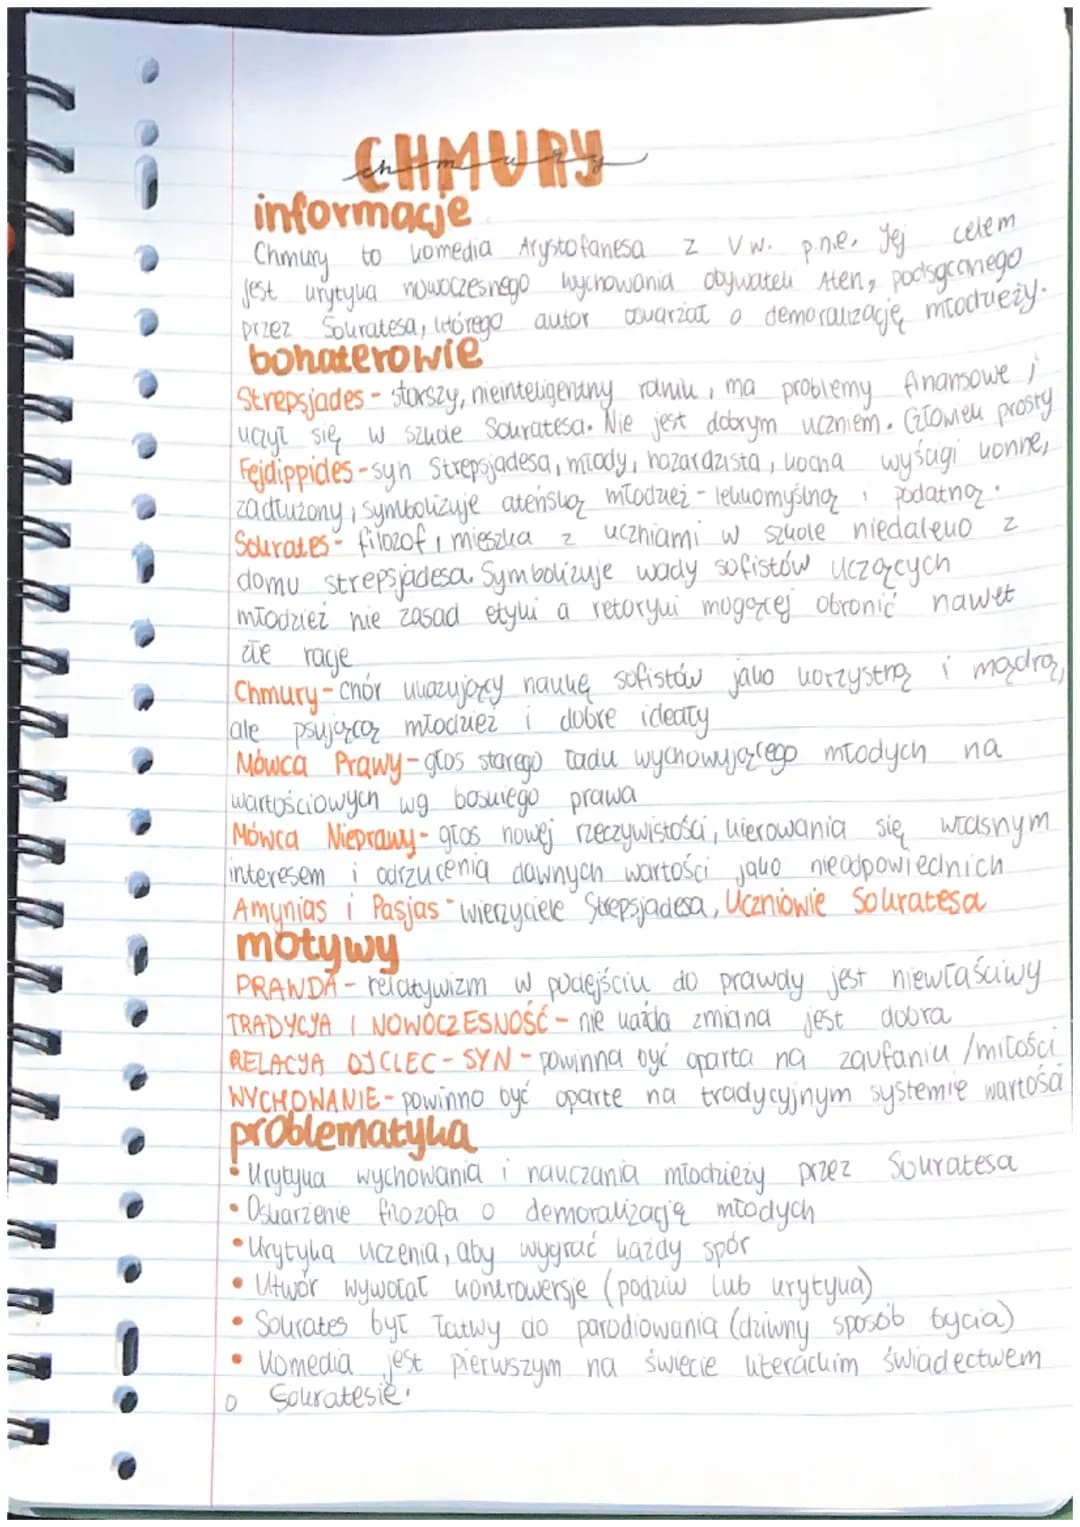 CHMURY
chmury
informacje
Chmury to komedia Arystofanesa z V w. p.n.e. Jej celem
jest krytyka nowoczesnego wychowania obywateli Aten, podsycanego
przez Sokratesa, którego autor oskarżał o demoralizację młodzieży.
bohaterowie
Strepsjades - starszy, nieinteligentny rolnik, ma problemy finansowe i
uczył się w szkole Sokratesa. Nie jest dobrym uczniem. Człowiek prosty
Fejdippides - syn Strepsjadesa, młody, hazardzista, kocha wyścigi konne,
zadłużony, symbolizuje ateńską młodzież - lekkomyślną i podatną.
Sokrates - filozof, mieszka z uczniami w szkole niedaleko z
domu strepsjadesa. Symbolizuje wady sofistów uczących
młodzież nie zasad etyki a retoryki mogącej obronić nawet
złe racje
Chmury - Chór ukazujący naukę sofistów jako korzystną i mądrą,
ale psującą młodzież i dobre ideały
Mówca Prawy - głos starego ładu wychowującego młodych na
wartościowych wg boskiego prawa
Mówca Nieprawy - głos nowej rzeczywistości, kierowania się własnym
interesem i odrzucenia dawnych wartości jako nieodpowiednich
Amynias i Pasjas - wierzyciele Strepsjadesa, Uczniowie Sokratesa
motywy
PRAWDA - relatywizm w podejściu do prawdy jest niewłaściwy
TRADYCJA I NOWOCZESNOŚĆ - nie każda zmiana jest dobra
RELACJA OJCIEC - SYN - powinna być oparta na zaufaniu / miłości
WYCHOWANIE - powinno być oparte na tradycyjnym systemie wartości
problematyka
• Krytyka wychowania i nauczania młodzieży przez Sokratesa
• Oskarżenie filozofa o demoralizację młodych
• Krytyka uczenia, aby wygrać każdy spór
• Utwór wywołał kontrowersje (podziw lub krytyka)
• Sokrates był łatwy do parodiowania (dziwny sposób bycia)
• Komedia jest pierwszym na świecie literackim świadectwem
o Sokratesie.